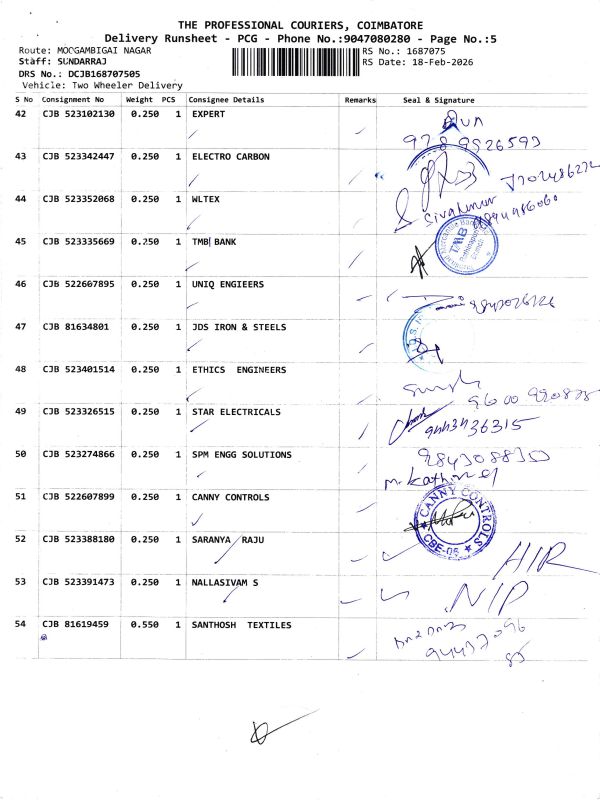 THE PROFESSIONAL COURIERS, COIMBATORE
Delivery Runsheet - PCG - Phone No.:9047080280 - Page No.:5
Route: MOOGAMBIGAI NAGAR
RS No.: 1687075
Staff: SUNDARRAJ
RS Date: 18-Feb-2026
DRS No.: DCJB168707505
Vehicle: Two Wheeler Delivery
S No Consignment No Weight PCS Consignee Details Remarks Seal & Signature
42 CJB 523102130 0.250 1 EXPERT
43 CJB 523342447 0.250 1 ELECTRO CARBON
44 CJB 523352068 0.250 1 WLTEX
Sivakumar
45 CJB 523335669 0.250 1 TMB BANK
TMB
46 CJB 522607895 0.250 1 UNIQ ENGIEERS
47 CJB 81634801 0.250 1 JDS IRON & STEELS
48 CJB 523401514 0.250 1 ETHICS ENGINEERS
49 CJB 523326515 0.250 1 STAR ELECTRICALS
9443436315
50 CJB 523274866 0.250 1 SPM ENGG SOLUTIONS
51 CJB 522607899 0.250 1 CANNY CONTROLS
CANNY CONTROLS
CBE-06
52 CJB 523388180 0.250 1 SARANYA RAJU
53 CJB 523391473 0.250 1 NALLASIVAM S
54 CJB 81619459 0.550 1 SANTHOSH TEXTILES